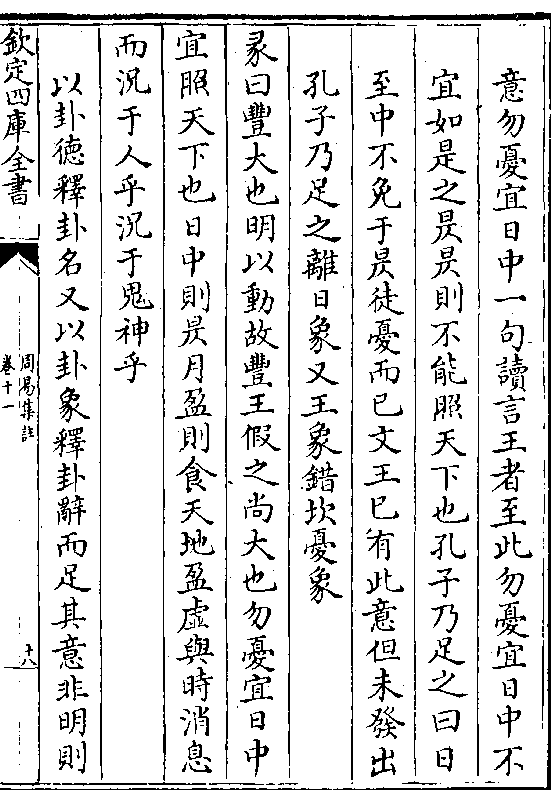 意勿憂宜日中一句讀言王者至此勿憂宜日中不
宜如是之昃昃則不能照天下也孔子乃足之曰日
至中不免于昃徒憂而已文王已有此意但未發出
孔子乃足之離日象又王象錯坎憂象
彖曰豐大也明以動故豐王假之尚大也勿憂宜日中
宜照天下也日中則昃月盈則食天地盈虛與時消息
而況于人乎況于鬼神乎
以卦德釋卦名又以卦象釋卦辭而足其意非明則
欽定四庫全書
周易集註
卷十一
十八